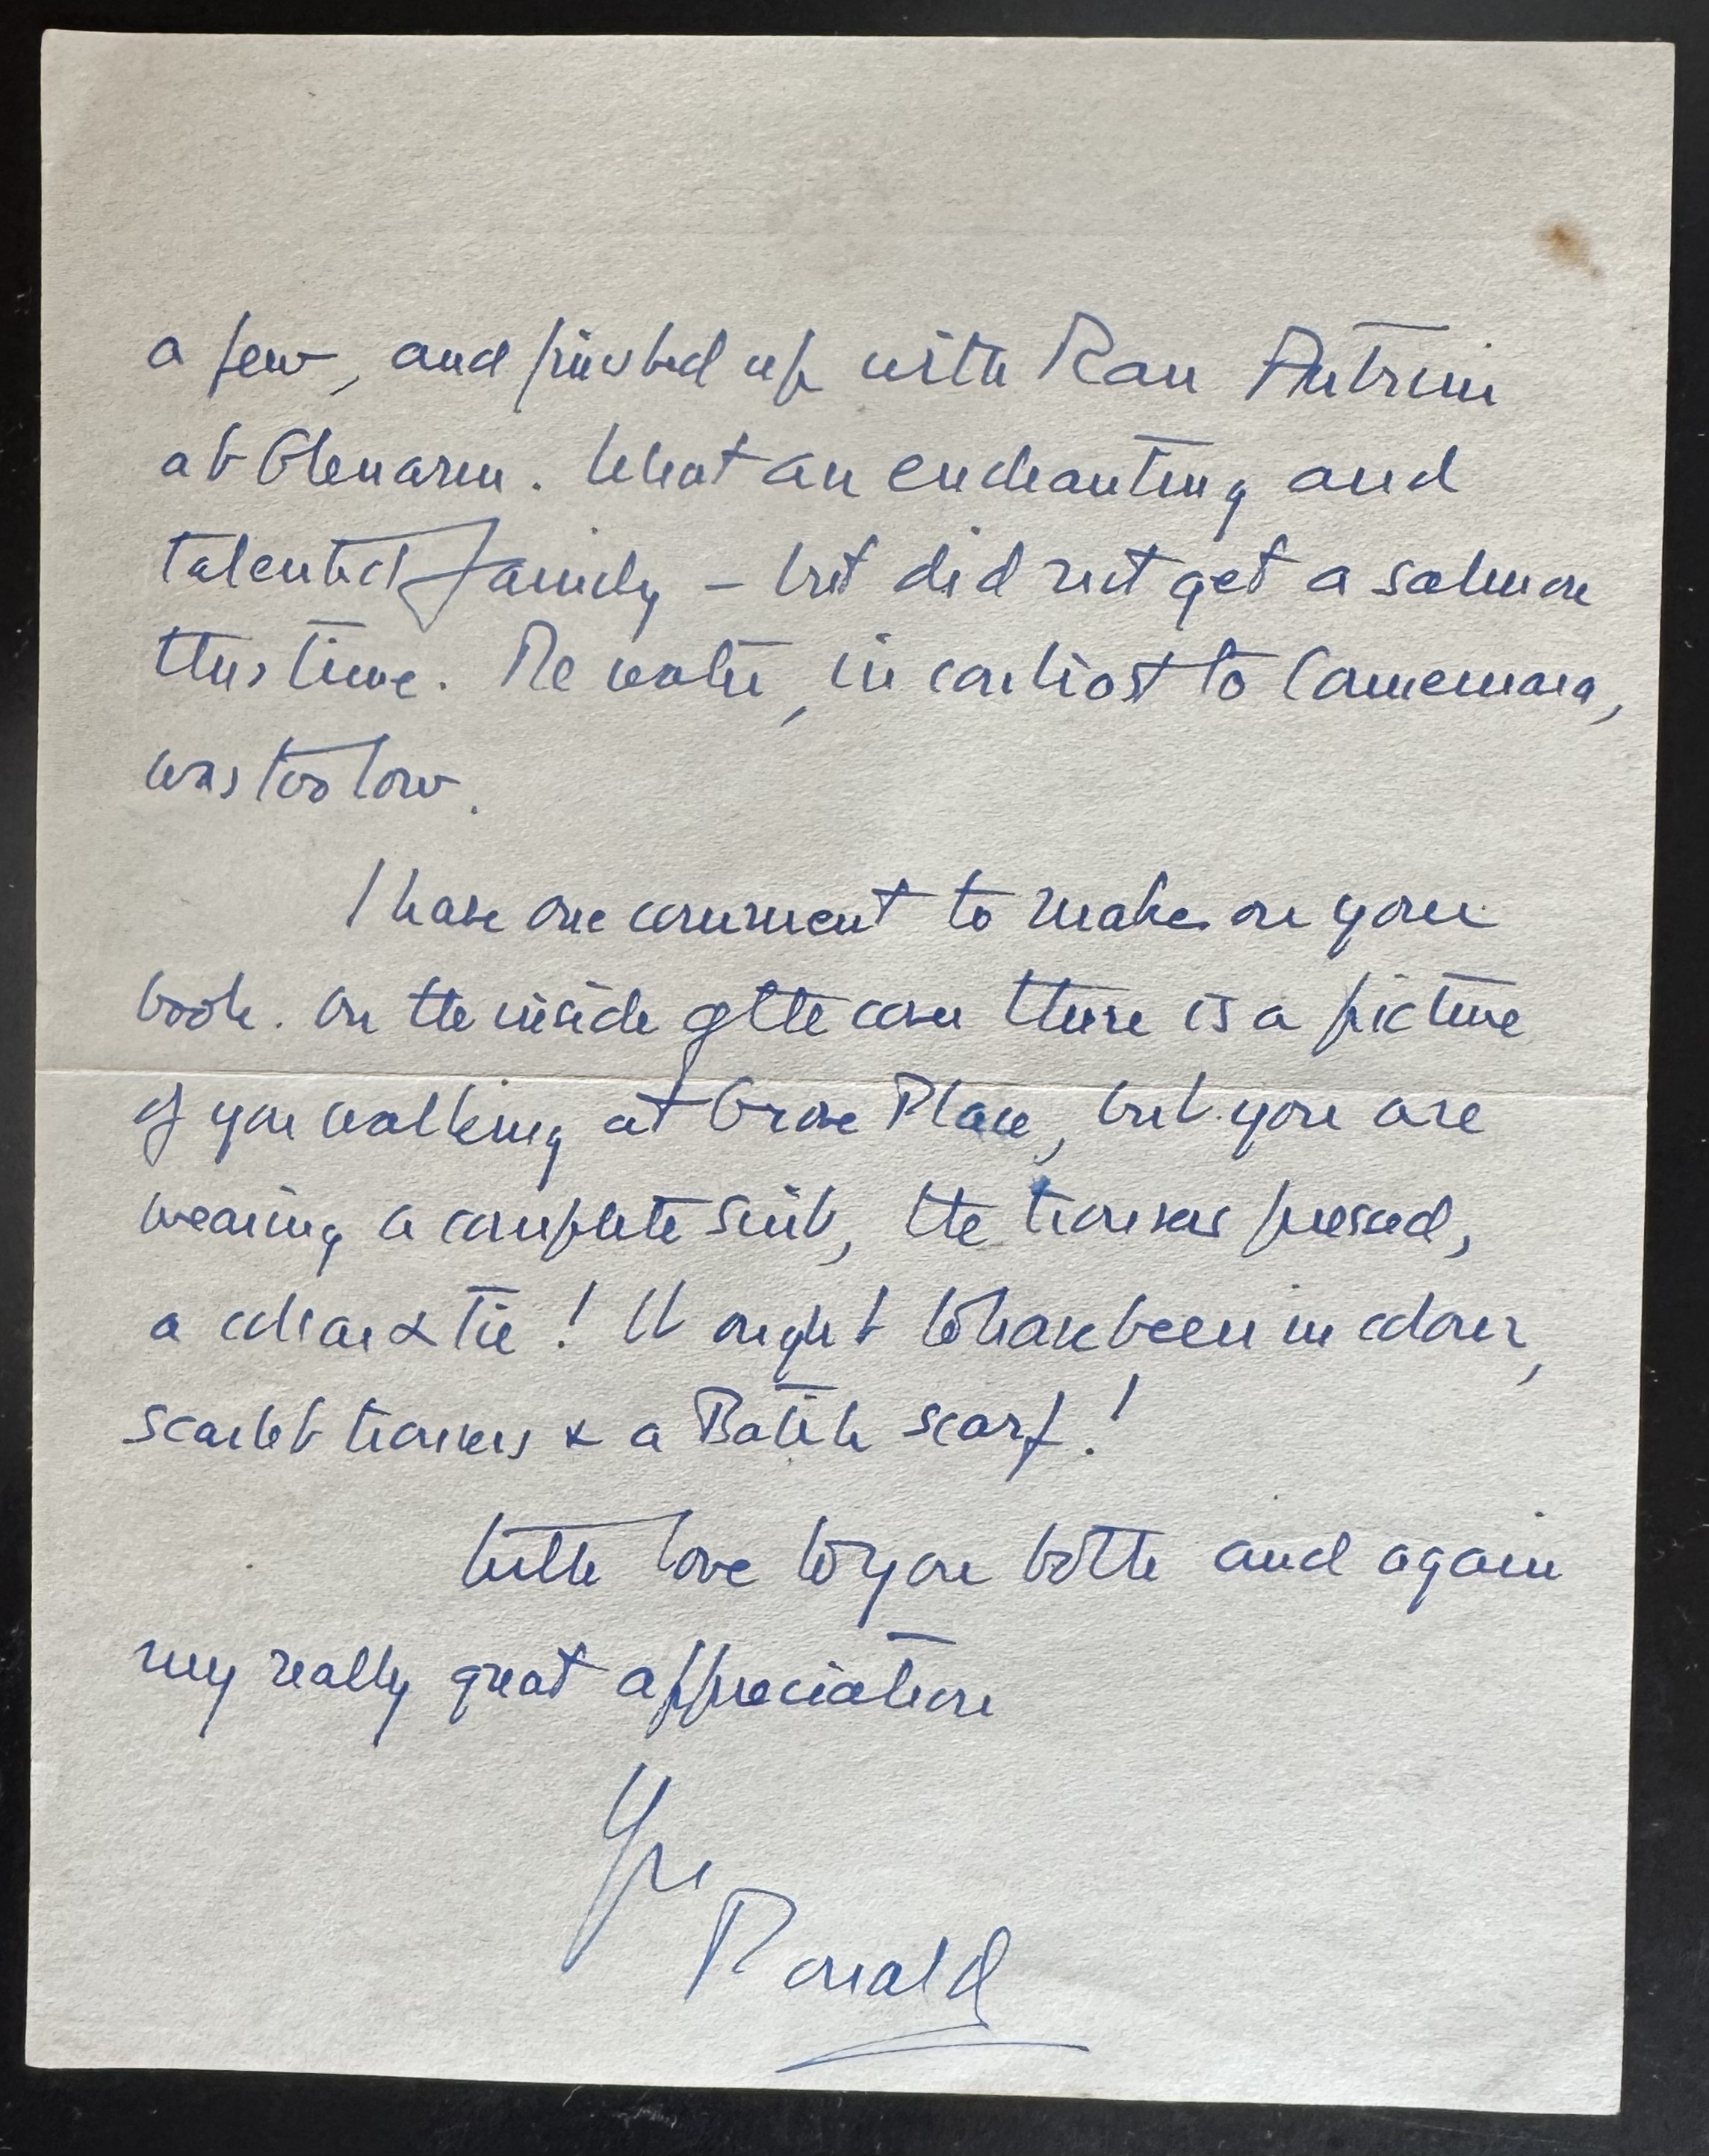 a few, and finished up with Ran Antrim
at Glenarm. What an enchanting and
talented family – but did not get a salmon
this time. The water, in contrast to Connemara,
was too low.
I have one comment to make on your
book. On the inside of the cover there is a picture
of you walking at Grove Place, but you are
wearing a complete suit, the trousers pressed,
a collar & tie! It ought to have been in colour,
scarlet trousers & a Batik scarf!
With love to you both and again
my really great appreciation
Yrs
Ronald